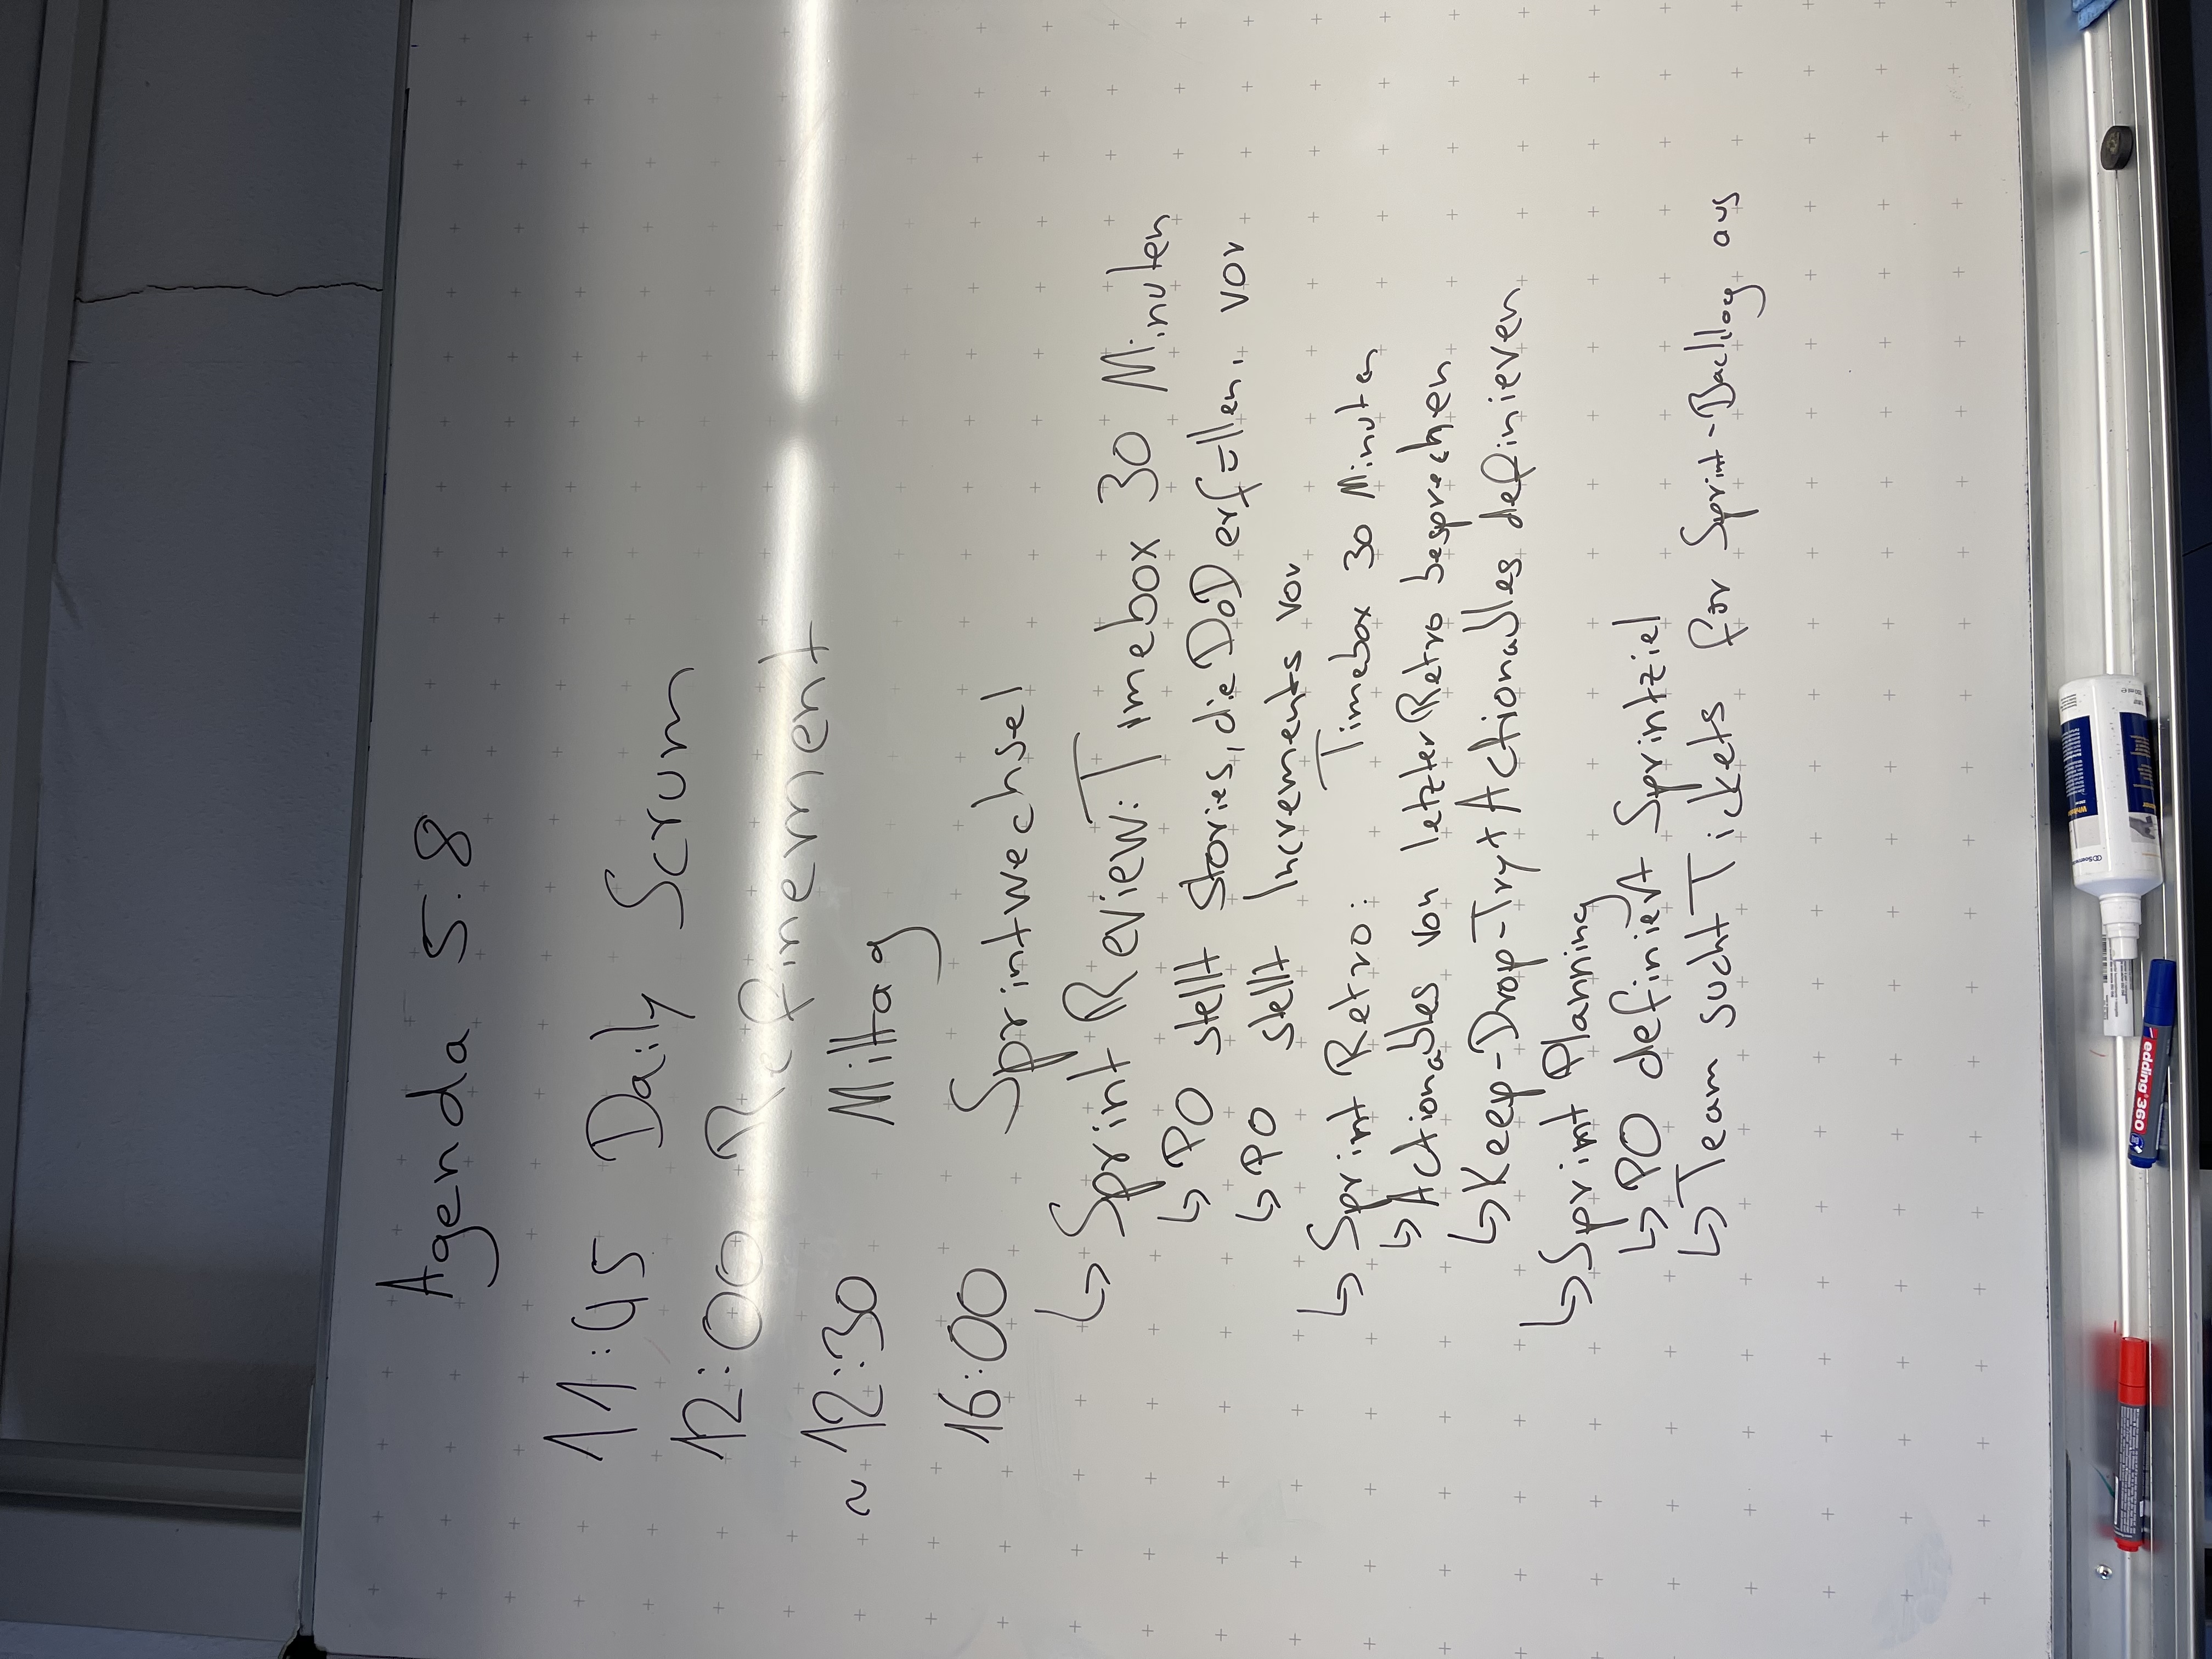 Agenda 5.8
11:45 Daily Scrum
12:00 Refinement
~ 12:30 Mittag
16:00 Sprintwechsel
↳ Sprint Review: Timebox 30 Minuten
↳ PO stellt Stories, die DoD erfüllen, vor
↳ PO stellt Increments vor
↳ Sprint Retro: Timebox 30 Minuten
↳ Actionables von letzter Retro besprechen
↳ Keep-Drop-Try + Actionables definieren
↳ Sprint Planning
↳ PO definiert Sprintziel
↳ Team sucht Tickets für Sprint-Backlog aus
edding 360